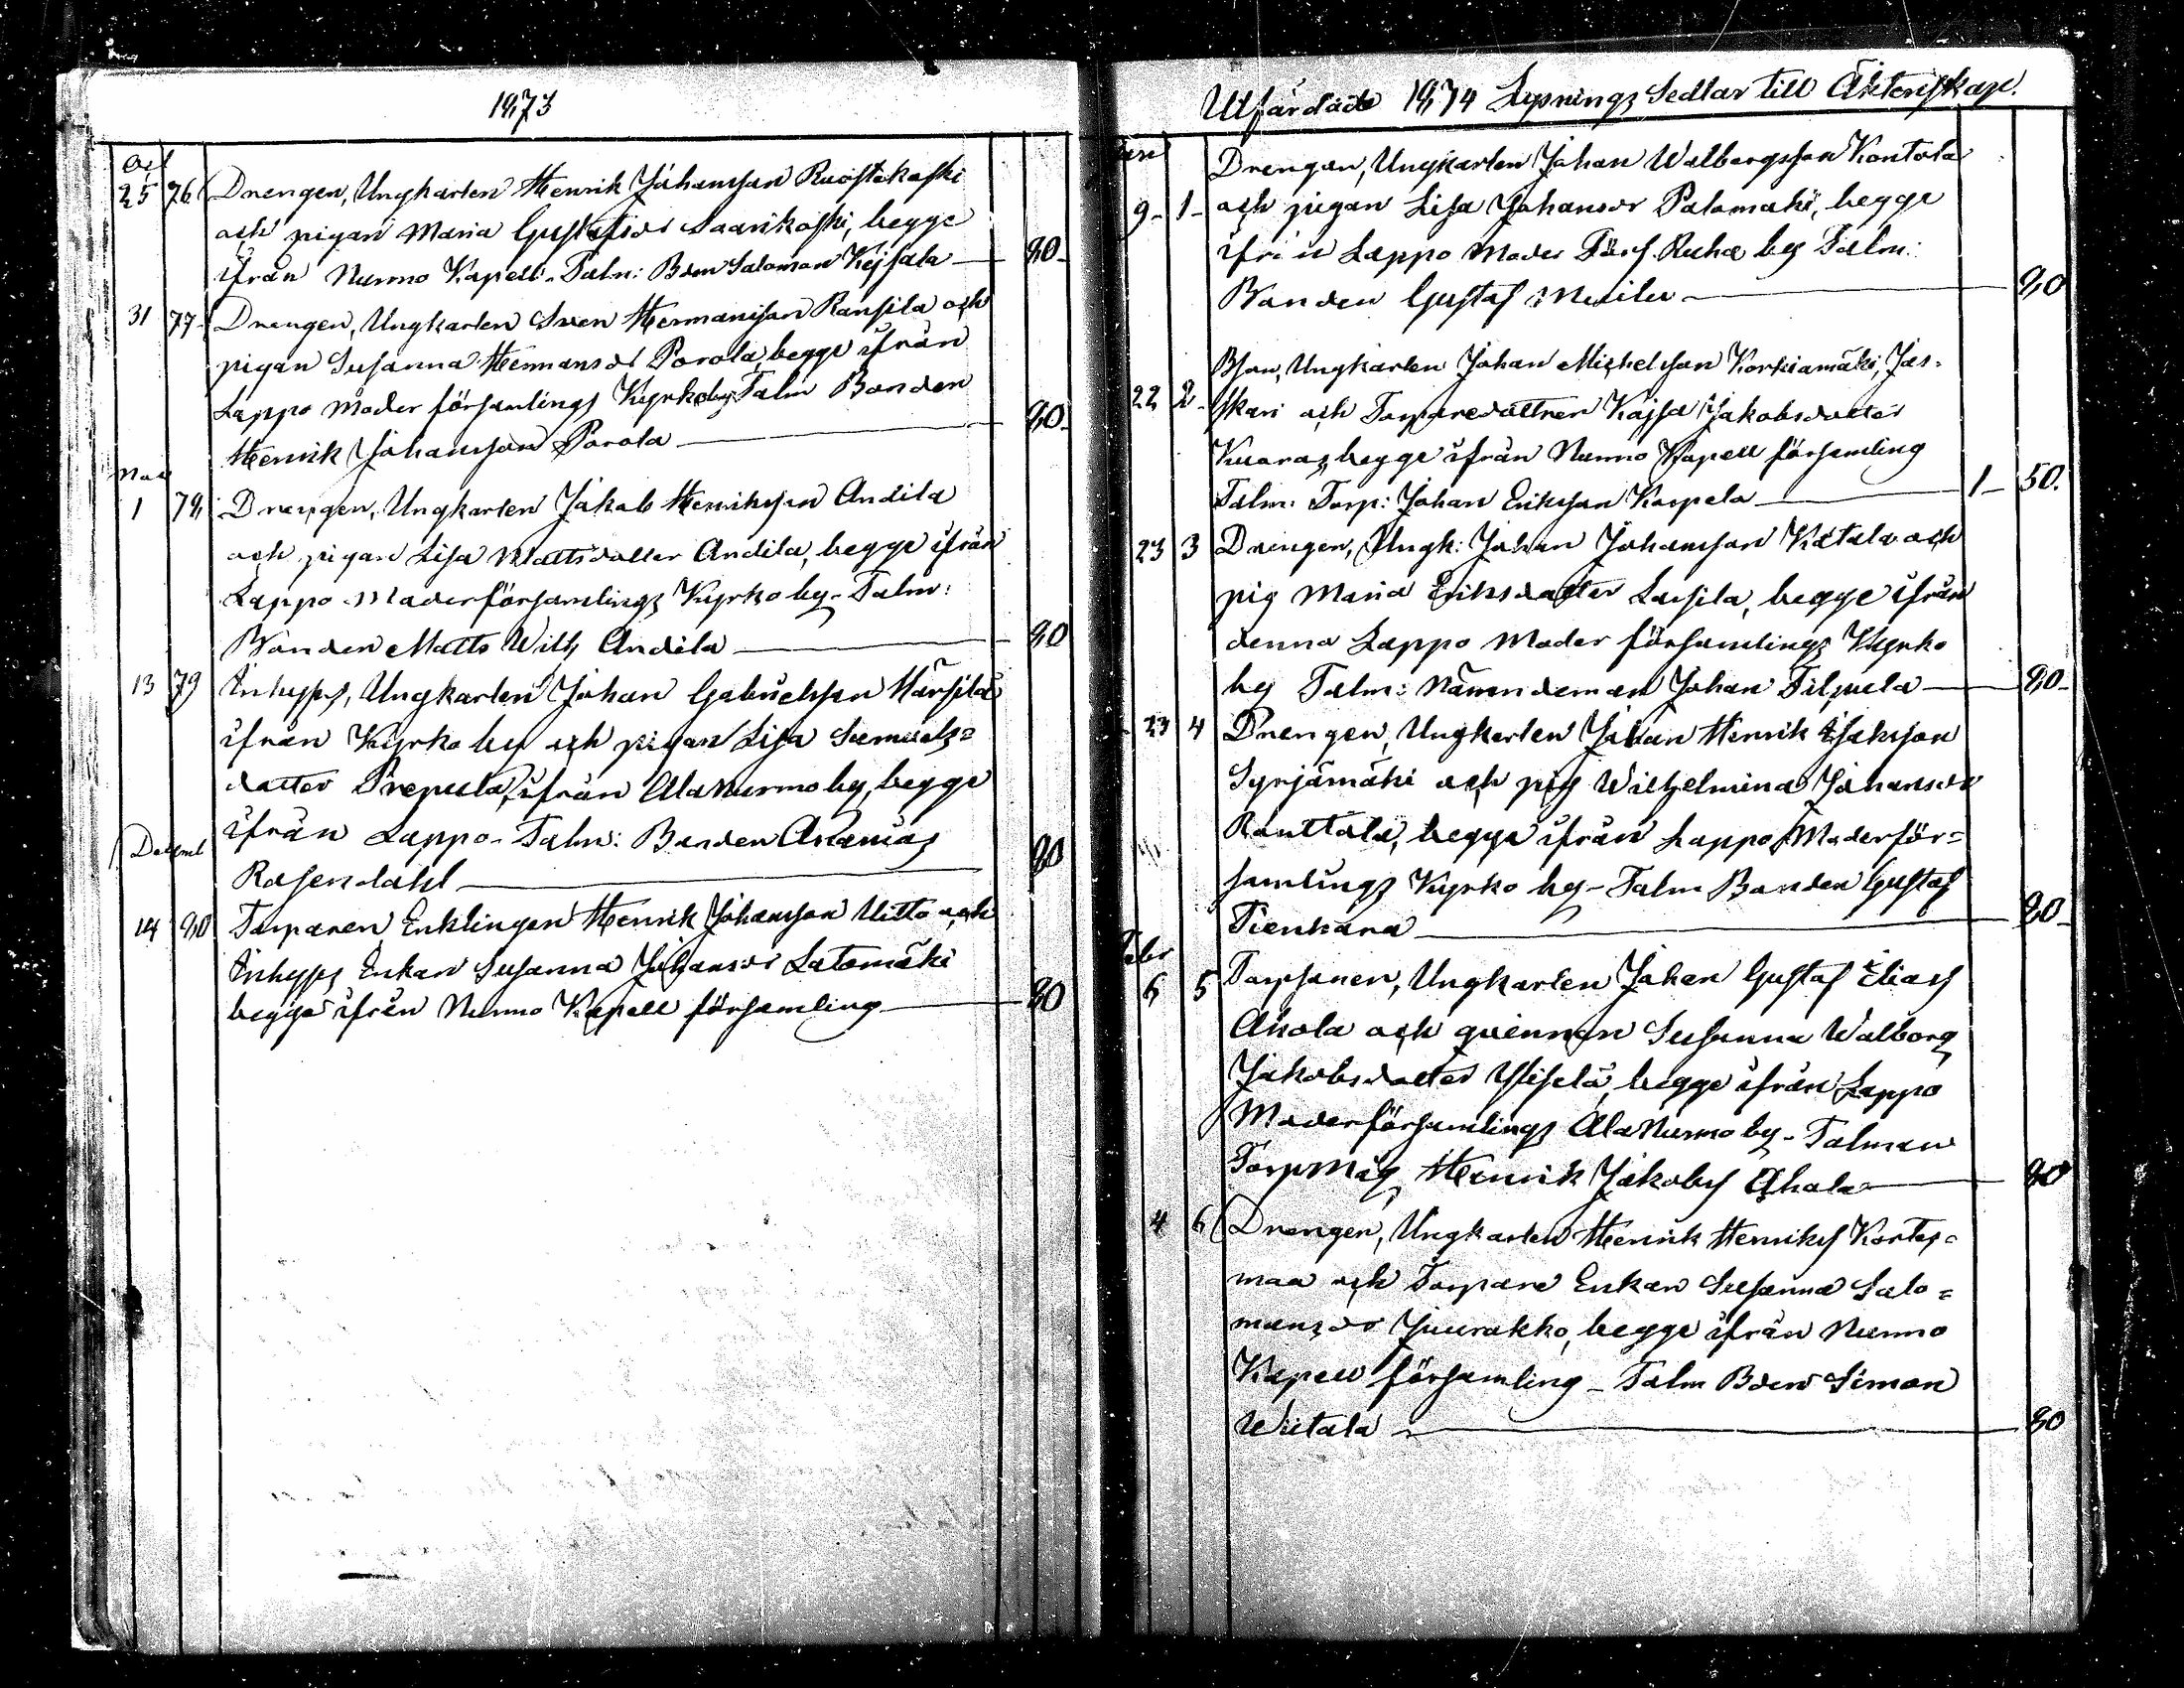 1873
Oct
25 76 Drengen, Ungkarlen Henrik Johansson Ruostekoski
och pigan Maria Gustafsdr Saarikoski, begge
ifrån Nurmo Kapell. Talm: Bden Salomon Kejsala — 80 -
31 77. Drengen, Ungkarlen Sven Hermansson Ransila och
pigan Susanna Hermansdr Porola, begge ifrån
Lappo Moder församlings Kyrkoby Talm Bonden
Henrik Johansson Porola — 80 -
Nov
1 78 Drengen, Ungkarlen Jakob Henriksson Andila
och pigan Lisa Mattsdotter Andila, begge ifrån
Lappo Moderförsamlings Kyrkoby - Talm:
Bonden Matts Wilh Andila — 80
13 79 Inhyses, Ungkarlen Johan Gabrielsson Härsilä
ifrån Kyrko by och pigan Lisa Samuels=
dotter Prepula, ifrån AlaNurmo by, begge
ifrån Lappo - Talm: Bonden Ananias
Decemb
Rosendahl — 80
14 80 Torparen Enklingen Henrik Johansson Uitto och
Inhyses Enkan Susanna Johansdr Latomäki
begge ifrån Nurmo Kapell församling — 80
Utfärdade 1874 Lysnings Sedlar till Äktenskap.
Jan
Drengen, Ungkarlen Johan Walborgsson Kontola
9 - 1 - och pigan Lisa Johansdr Palomäki, begge
ifrån Lappo Moder Förs. Ruha by Talm:
Bonden Gustaf — 80
Bson, Ungkarlen Johan Michelsson Korkiamäki, Jas-
22 2 - skari och Torparedottren Kajsa Jakobsdotter
Kuoras, begge ifrån Nurmo Kapell församling
Talm: Torp: Johan Eriksson Karpela — 1 - 50.
23 3 Drengen, Ungk: Johan Johansson Katala och
pig Maria Eriksdotter Lassila, begge ifrån
denna Lappo Moder församlings Kyrko
by Talm: Nämndeman Johan Filpula — 80 -
23 4 Drengen, Ungkarlen Johan Henrik Isaksson
Syrjämäki och pig Wilhelmina Johansdr
Ranttala, begge ifrån Lappo Moderför=
samlings Kyrko by - Talm Bonden Gustaf
Tienhara — 80 -
Febr
6 5 Torpsonen, Ungkarlen Johan Gustaf Eliass
Ahola och qvinnan Susanna Walborg
Jakobsdotter Ylisela, begge ifrån Lappo
Moderförsamlings AlaNurmo by - Talman
Torpmåg Henrik Jakobss Ahola — 80
4 6 Drengen, Ungkarlen Henrik Henrikss Kortes=
maa och Torpare Enkan Susanna Salo=
monsdr Juurakko, begge ifrån Nurmo
Kapell församling - Talm Bden Simon
Wiitala — 80